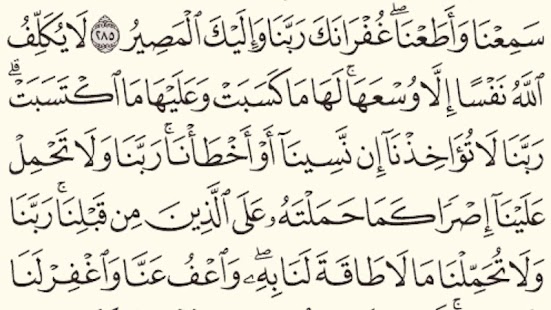 سَمِعْنَا وَأَطَعْنَا ۖ غُفْرَانَكَ رَبَّنَا وَإِلَيْكَ الْمَصِيرُ ٢٨٥ لَا يُكَلِّفُ
اللَّهُ نَفْسًا إِلَّا وُسْعَهَا ۚ لَهَا مَا كَسَبَتْ وَعَلَيْهَا مَا ٱكْتَسَبَتْ ۗ
رَبَّنَا لَا تُؤَاخِذْنَآ إِن نَّسِينَآ أَوْ أَخْطَأْنَا ۚ رَبَّنَا وَلَا تَحْمِلْ
عَلَيْنَآ إِصْرًا كَمَا حَمَلْتَهُۥ عَلَى ٱلَّذِينَ مِن قَبْلِنَا ۚ رَبَّنَا
وَلَا تُحَمِّلْنَا مَا لَا طَاقَةَ لَنَا بِهِۦ ۖ وَٱعْفُ عَنَّا وَٱغْفِرْ لَنَا